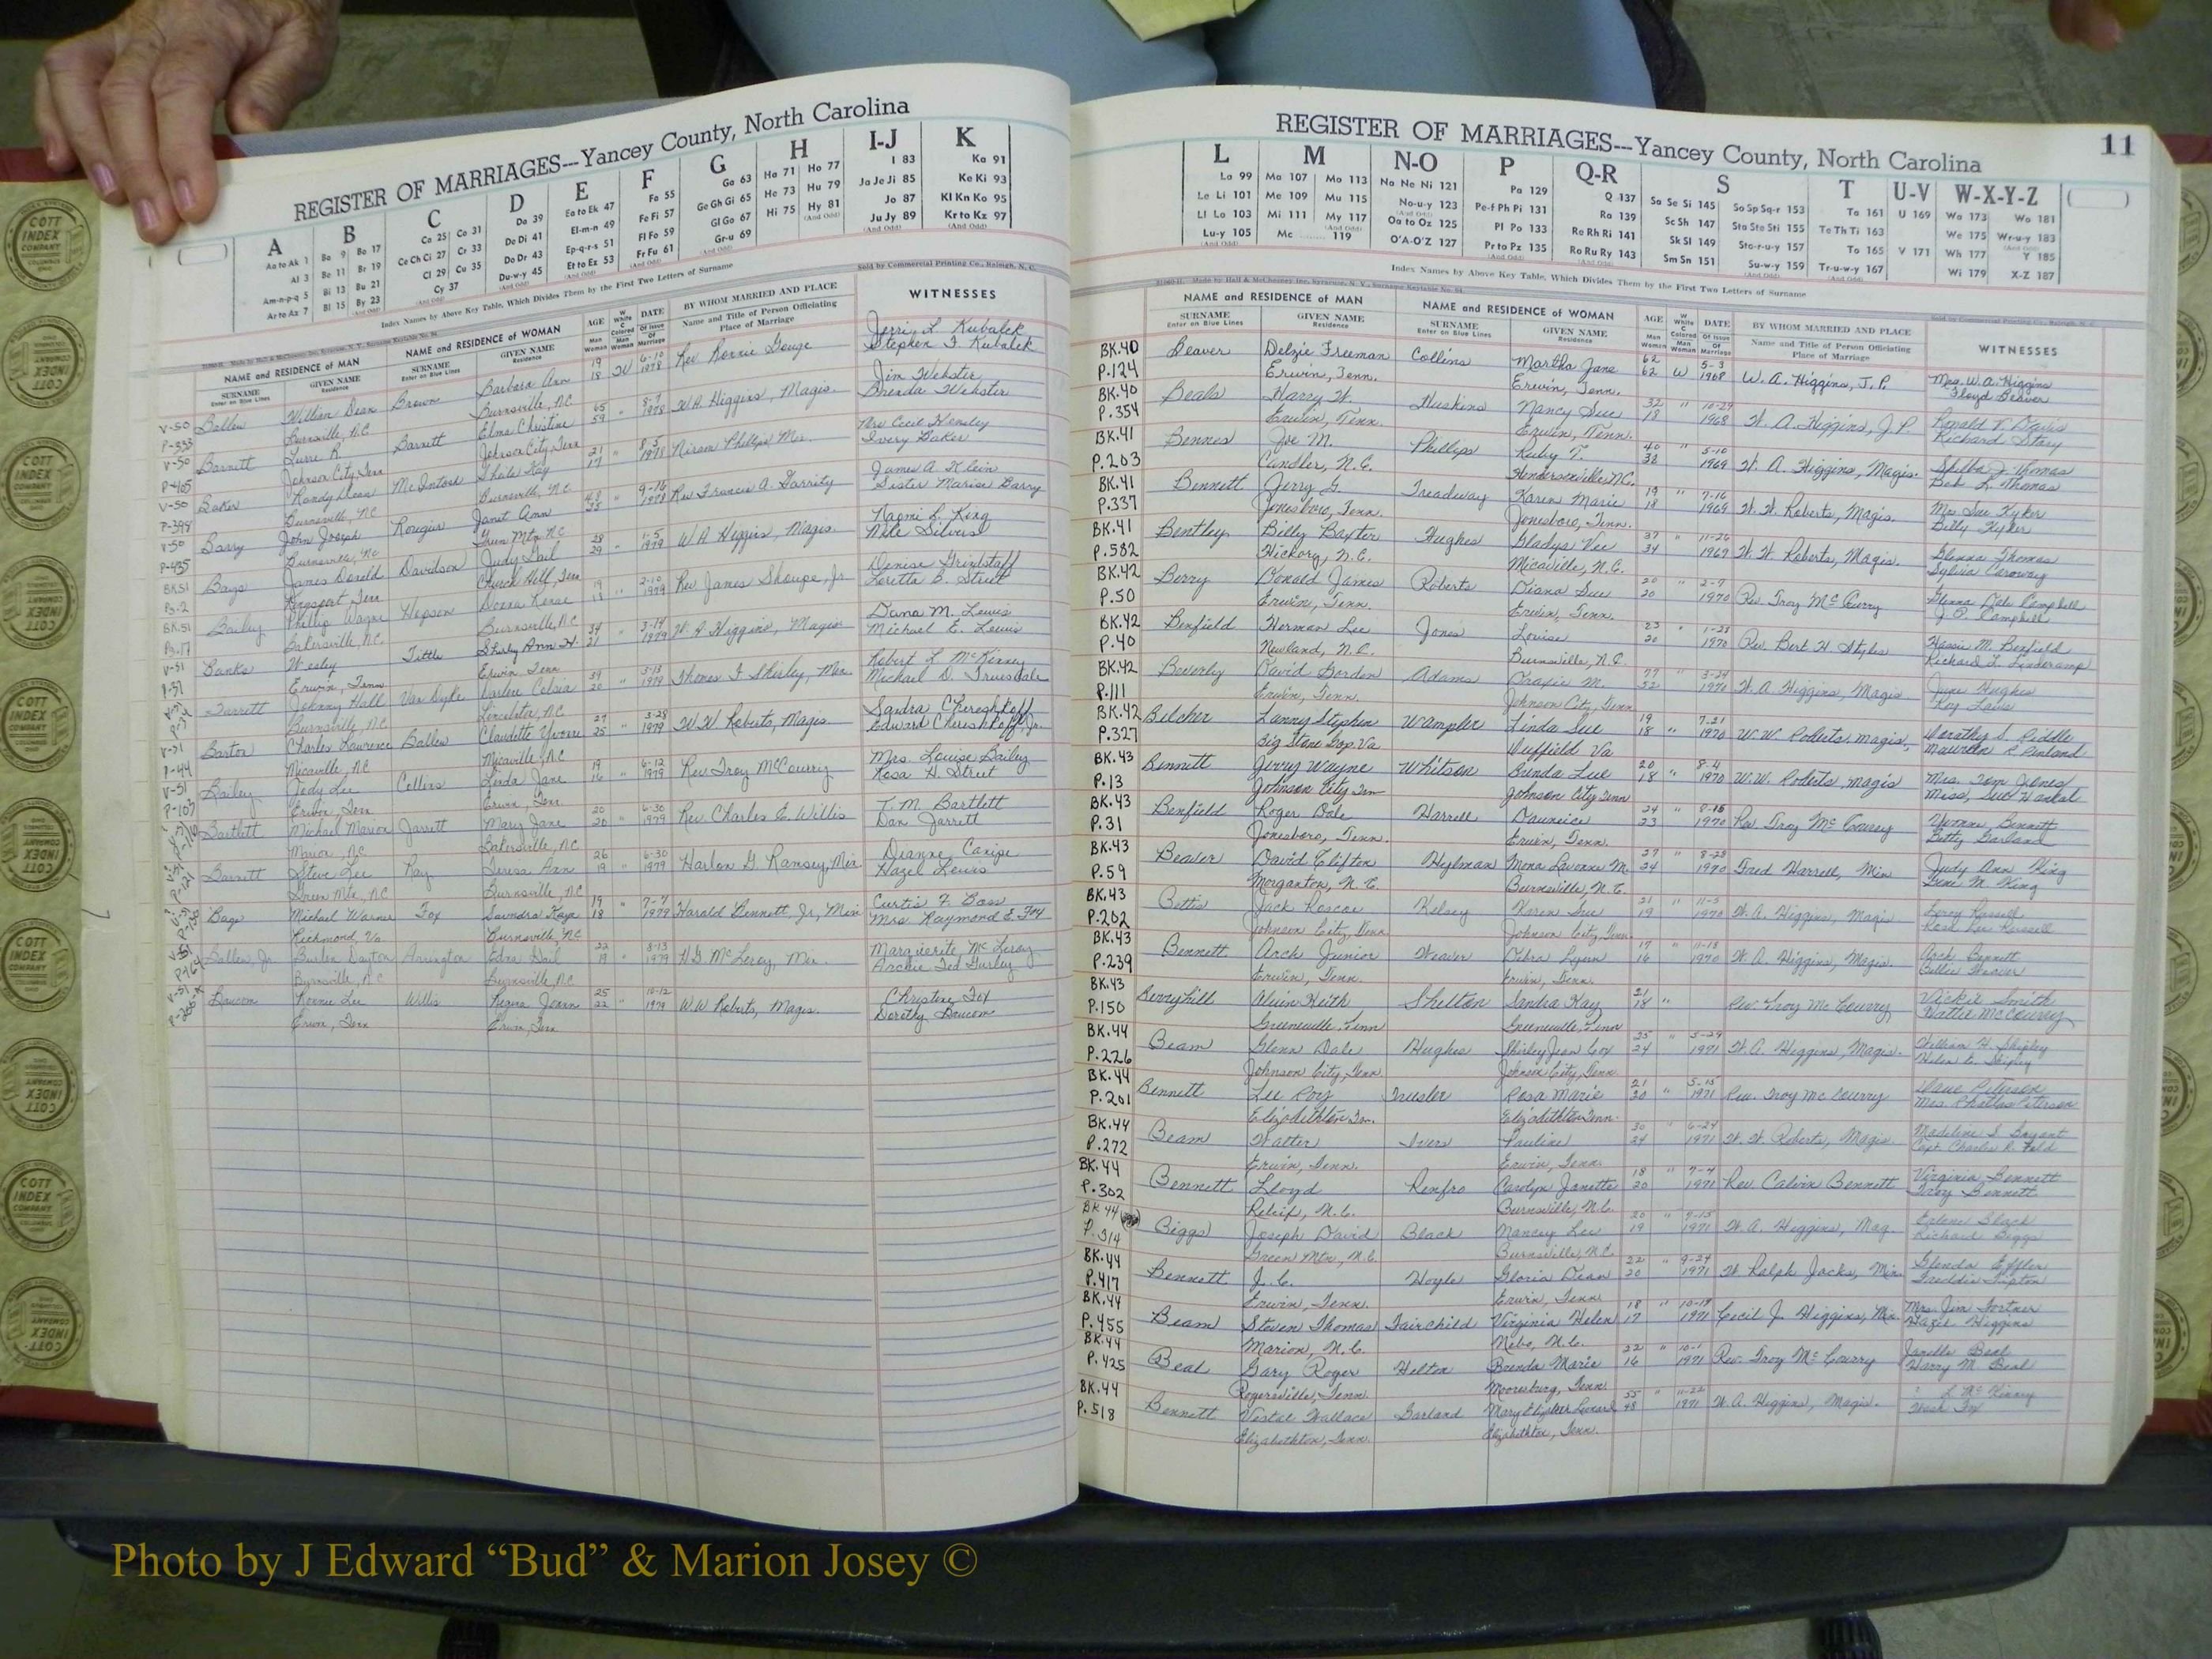 REGISTER OF MARRIAGES---Yancey County, North Carolina
A B C D E F G H I-J K
Aa to Ak 1 Ba 9 Bo 17 Ca 25 Co 31 Da 39 Ea to Ek 47 Fa 55 Ga 63 Ha 71 Ho 77 I 83 Ka 91
Al 3 Be 11 Br 19 Ce Ch Ci 27 Cr 33 De Di 41 El-m-n 49 Fe Fi 57 Ge Gh Gi 65 He 73 Hu 79 Ja Je Ji 85 Ke Ki 93
Am-n-p-q 5 Bi 13 Bu 21 Cl 29 Cu 35 Do Dr 43 Ep-q-r-s 51 Fl Fo 59 Gl Go 67 Hi 75 Hy 81 Jo 87 Kl Kn Ko 95
Ar to Az 7 Bl 15 By 23 Cy 37 Du-w-y 45 Et to Ez 53 Fr Fu 61 Gr-u 69 Ju Jy 89 Kr to Kz 97
Index Names by Above Key Table, Which Divides Them by the First Two Letters of Surname
Sold by Commercial Printing Co., Raleigh, N. C.
NAME and RESIDENCE of MAN NAME and RESIDENCE of WOMAN AGE DATE BY WHOM MARRIED AND PLACE WITNESSES
SURNAME GIVEN NAME SURNAME GIVEN NAME Name and Title of Person Officiating
Enter on Blue Lines Residence Enter on Blue Lines Residence Place of Marriage
V-50 Ballew William Dean Brown Barbara Ann 19 18 W 6-10 1978 Rev Ronnie Gouge Jerri L. Kubalek
P-333 Burnsville, NC Burnsville, NC Stephen F. Kubalek
V-50 Barnett Barnett Elma Christine 65 59 " 8-7 1978 W.A. Higgins, Magis. Jim Webster
P-405 Johnson City, Tenn Johnson City, Tenn Brenda Webster
V-50 Baker Randy Dean McIntosh Kay 21 17 " 8-5 1978 Phillips Mrs Cecil Hensley
P-398 Burnsville, NC Burnsville, NC Ivery Baker
V-50 Barry John Joseph Janet Ann " 9-16 1978 Rev Francis A. Garrity James A Klein
P-435 Burnsville, NC Green Mtn NC Sister Marise Barry
BK51 Bays James Donald Davidson Judy Gail 28 29 " 1-5 1979 W A Higgins, Magis Naomi L. King
Pg-2 Kingsport Tenn Church Hill, Tenn Nile Silvers
BK-51 Bailey Phillip Wayne Hopson Donna Renee 19 " 2-10 1979 Rev James Shoupe, Jr Denise Grindstaff
Pg-17 Bakersville, N.C. Burnsville, NC Loretta B. Street
V-51 Banks Wesley Tittle Shirley Ann H. 34 21 " 3-14 1979 W. A. Higgins, Magis Dana M. Lewis
Erwin, Tenn Erwin Tenn Michael E. Lewis
Johnny Hall Van Dyke Darlene Celsia 39 20 " 3-13 1979 Thomas F Shirley, Min. Robert L McKinney
Burnsville, NC Lincolnton, NC Michael D. Truesdale
V-51 Barton Charles Lawrence Ballew Claudette Yvonne 27 25 " 3-28 1979 W W Roberts, Magis. Sandra Chereshkoff
P-44 Micaville, NC Micaville, NC Edward Chereshkoff, Jr.
V-51 Bailey Jody Lee Collins Linda Jane 19 16 " 6-12 1979 Rev Troy McCourry Mrs. Louise Bailey
P-103 Erwin, Tenn Erwin, Tenn Rosa H. Street
Bartlett Michael Marion Jarrett Mary Jane 20 20 " 6-30 1979 Rev. Charles E. Willis T. M. Bartlett
Marion, NC Bakersville, NC Dan Jarrett
Barnett Steve Lee Ray Teresa Ann 26 19 " 6-30 1979 Harlon G Ramsey, Min. Dianne Canipe
P-121 Green Mtn., NC Burnsville, NC Hazel Lewis
Michael Warner Fox Saundra Kaye 19 18 " 7-7 1979 Harold Bennett, Jr, Min Curtis F. Bass
Richmond, Va. Burnsville, NC Mrs. Raymond E. Fox
Ballew, Jr. Burlin Dayton Arrington Edna Gail 22 19 " 8-13 1979 Marguerite McLeroy
Burnsville, NC Burnsville, NC Archie Ted Gurley
Baucom Ronnie Lee Willis 25 22 " 10-12 1979 W.W. Roberts, Magis. Christine Fox
Erwin, Tenn Erwin, Tenn Dorothy Baucom
REGISTER OF MARRIAGES---Yancey County, North Carolina 11
L M N-O P Q-R S T U-V W-X-Y-Z
La 99 Ma 107 Mo 113 Na Ne Ni 121 Pa 129 Q 137 Sa Se Si 145 So Sp Sq-r 153 Ta 161 U 169 Wa 173 Wo 181
Le Li 101 Me 109 Mu 115 No-u-y 123 Pe-f Ph Pi 131 Ra 139 Sc Sh 147 Sta Ste Sti 155 Te Th Ti 163 We 175 Wr-u-y 183
Ll Lo 103 Mi 111 My 117 Oa to Oz 125 Pl Po 133 Re Rh Ri 141 Sk Sl 149 Sto-r-u-y 157 To 165 V 171 Wh 177 Y 185
Lu-y 105 Mc 119 O'A-O'Z 127 Pr to Pz 135 Ro Ru Ry 143 Sm Sn 151 Su-w-y 159 Tr-u-w-y 167 Wi 179 X-Z 187
Index Names by Above Key Table, Which Divides Them by the First Two Letters of Surname
NAME and RESIDENCE of MAN NAME and RESIDENCE of WOMAN AGE DATE BY WHOM MARRIED AND PLACE WITNESSES
SURNAME GIVEN NAME SURNAME GIVEN NAME Name and Title of Person Officiating
Enter on Blue Lines Residence Enter on Blue Lines Residence Place of Marriage
BK.40 Beaver Delzie Freeman Collins Martha Jane 62 62 W 5-3 1968 W. A. Higgins, J.P. Mrs. W.A. Higgins
P.124 Erwin, Tenn. Erwin, Tenn. Floyd Beaver
BK.40 Beals Harry W. Huskins Nancy Sue 32 18 " 10-29 1968 W. A. Higgins, J.P. Ronald T. Davis
P.354 Erwin, Tenn. Erwin, Tenn. Richard Story
BK.41 Bennes Joe M. Phillips Ruby T. 40 38 " 5-10 1969 W. A. Higgins, Magis. Shelba J. Thomas
P.203 Candler, N.C. Hendersonville N.C. Bob L. Thomas
BK.41 Bennett Jerry G. Treadway Karen Marie 19 18 " 7-16 1969 W. W. Roberts, Magis. Mrs Sue Kyker
P.337 Jonesboro, Tenn. Jonesboro, Tenn. Billy Kyker
BK.41 Bentley Billy Baxter Hughes Gladys Vee 37 34 " 11-26 1969 W. W. Roberts, Magis. Glenna Thomas
P.582 Hickory, N.C. Micaville, N.C. Sylvia
BK.42 Berry Donald James Roberts Diana Sue 20 20 " 2-7 1970 Rev Troy McCurry Glenna Dale Campbell
P.50 Erwin, Tenn. Erwin, Tenn. J. P. Campbell
BK.42 Benfield Herman Lee Jones Louise 23 20 " 1-28 1970 Rev. Bert H Styles Hassie M. Benfield
P.40 Newland, N.C. Burnsville, N.C. Richard L.
BK.42 Beverly David Gordon Adams M. 77 52 " 3-24 W. A. Higgins, Magis. June Hughes
P.111 Erwin, Tenn. Johnson City, Tenn Roy Laws
BK.42 Belcher Lanny Stephen Wampler Linda Sue 19 18 " 7-21 1970 W.W. Roberts, magis. Dorothy S. Riddle
P.327 Big Stone Gap, Va Duffield Va Maureen R. Penland
BK.43 Bennett Jerry Wayne Whitson Brenda Lee 20 18 " 8-4 1970 W.W. Roberts, magis Mrs. Tom Jones
P.13 Johnson City Tenn Johnson City Tenn Miss, Sue
BK.43 Benfield Roger Dale Harrell 24 23 " 8-15 1970 Rev. Troy McCourry Yvonne Bennett
P.31 Jonesboro, Tenn. Erwin, Tenn. Betty Garland
BK.43 Beaver David Clifton Mona Lavonne M. 27 24 " 8-28 1970 Fred Harrell, Min Judy Ann King
P.59 Morganton, N.C. Burnsville, N.C. Gene N. King
BK.43 Bettis Jack Roscoe Kelsey Karen Sue 21 19 " 11-5 1970 W. A. Higgins, Magis Leroy Russell
P.202 Johnson City, Tenn Johnson City, Tenn. Rosa Lee Russell
BK.43 Bennett Arch Junior Weaver Debra Lynn 17 16 " 11-18 1970 W. A. Higgins, Magis. Arch Bennett
P.239 Erwin, Tenn. Erwin, Tenn. Billie Weaver
BK.43 Berryhill Alvin Keith Shelton Sandra Kay 21 18 " Rev. Troy McCourry Vickie Smith
P.150 Greeneville, Tenn Greeneville, Tenn Hattie McCourry
BK.44 Beam Glenn Dale Hughes Shirley Jean Cox 35 24 " 5-29 1971 W. A. Higgins, Magis. William H. Shipley
P.226 Johnson City, Tenn. Johnson City, Tenn. Helen C. Shipley
BK.44 Bennett Lee Roy Rosa Marie 21 20 " 5-15 1971 Rev. Troy McCourry Dave Peterson
P.201 Elizabethton Tn. Elizabethton Tenn. Mrs. Phillip Peterson
BK.44 Beam Walter Ivers Pauline 30 24 " 6-24 1971 W. W. Roberts, Magis. Madeline S Bryant
P.272 Erwin, Tenn. Erwin, Tenn. Capt. Charles R.
BK.44 Bennett Lloyd Renfro Carolyn Janette 18 20 " 7-4 1971 Rev. Calvin Bennett Virginia Bennett
P.302 Relief, N.C. Burnsville, N.C. Troy Bennett
BK 44 Biggs Joseph David Black Nancy Lee 20 19 " 7-15 1971 W. A. Higgins, Mag. Black
P.314 Green Mtn., N.C. Burnsville, N.C. Richard Biggs
BK.44 Bennett J. C. Hoyle Gloria Dean 22 20 " 9-24 1971 W Ralph Jacks, Min Glenda Effler
P.417 Erwin, Tenn. Erwin, Tenn. Freddie Tipton
BK.44 Beam Steven Thomas Fairchild Virginia Helen 18 17 " 10-19 1971 Cecil J. Higgins, Min. Mrs. Jim Fortner
P.455 Marion, N.C. Nebo, N.C. Hazel Higgins
BK.44 Beal Gary Roger Helton Brenda Marie 22 16 " 10-1 1971 Rev. Troy McCourry Janelle Beal
P.425 Rogersville, Tenn. Mooresburg, Tenn. Harry M. Beal
BK.44 Bennett Vestal Wallace Garland Mary Elizabeth 55 48 " 11-22 1971 W. A. Higgins, Magis. L McKinney
P.518 Elizabethton, Tenn. Elizabethton, Tenn. Fox
COTT INDEX COMPANY
Photo by J Edward “Bud” & Marion Josey ©